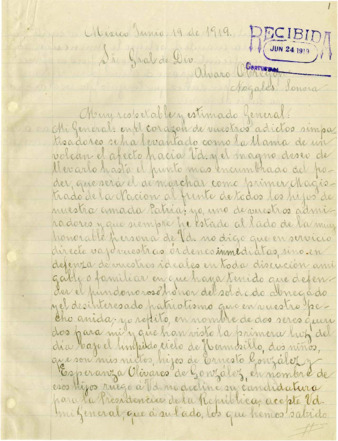 1
México Junio 19 de 1919.
RECIBIDA
JUN 24 1919
Sr. Gral de Div.
Alvaro Obregón
Nogales, Sonora
Muy respetable y estimado General:
Mi General: en el corazón de vuestros adictos simpa-
tisadores se ha levantado como la llama de un
volcan el afecto hacia Vd. y el magno deseo de
llevarlo hasta el punto mas encumbrado del po-
der, que sera el de marchar como primer Magis-
trado de la Nación al frente de todos los hijos de
nuestra amada Patria; yo, uno de vuestros admi-
radores y que siempre he estado al lado de la muy
honorable persona de Vd. no digo que en servicio
directo vajo vuestras ordenes inmediatas, sino en
defenza de vuestros ideales en toda discución ami-
gable o familiar en que haya tenido que defen-
der el pundonoroso honor del soldado abnegado
y el desinteresado patriotismo que en vuestro pe-
cho anida; y repito, en nombre de dos seres queri-
dos para mi y que han visto la primera luz del
día bajo el limpido cielo de Hermosillo, dos niños,
que son mis nietos, hijos de Ernesto González y
Esperanza Olivares de González, en nombre de
esos hijos ruego a Vd. no decline su candidatura
para la Presidencia de la República, acepte Vd.
mi General, que a su lado, los que hemos sabido